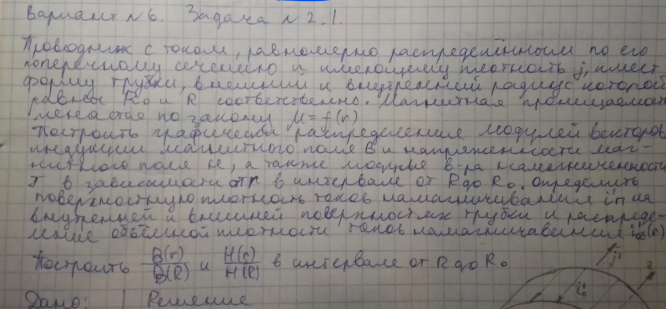 Вариант №6. Задача №2.1.
Проводник с током, равномерно распределённым по его
поперечному сечению и имеющему плотность j, имеет
форму трубки, внешний и внутренний радиус которой
равны R₀ и R соответственно. Магнитная проницаемость
меняется по закону μ = f(r)
Построить графически распределение модулей векторов
индукции магнитного поля B и напряженности маг-
нитного поля H, а также модуля в-ра намагниченности
J в зависимости от r в интервале от R до R₀. Определить
поверхностную плотность токов намагничивания i'п на
внутренней и внешней поверхностях трубки и распреде-
ление объёмной плотности токов намагничивания i'об(r)
Построить B(r)/B(R) и H(r)/H(R) в интервале от R до R₀
Дано: Решение